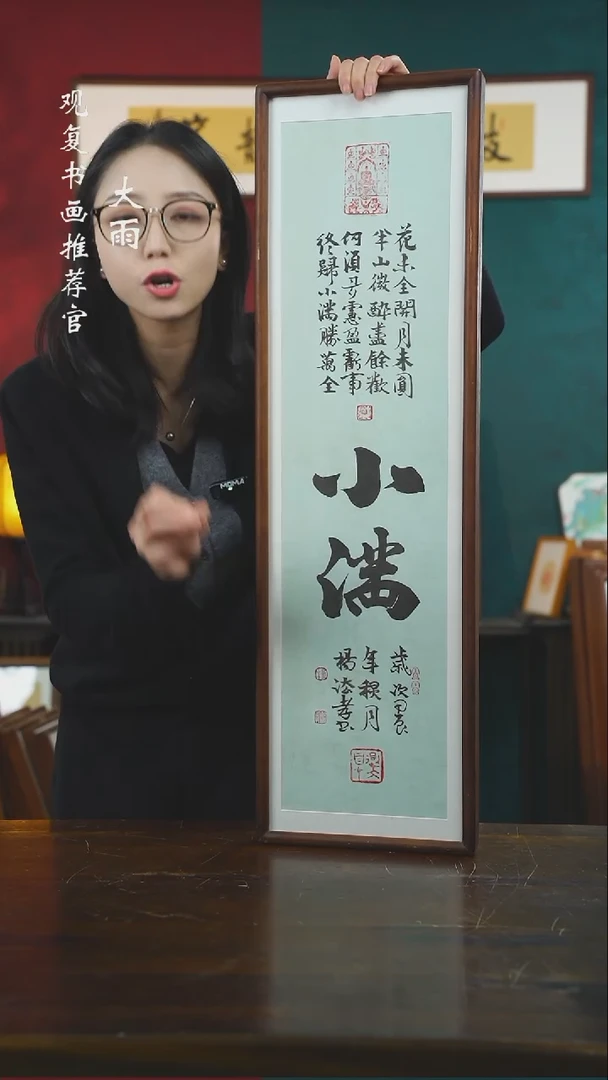 观复书画推荐官
大雨
花未全開月未圓
半山微醉盡餘歡
何須多慮盈虧事
終歸小滿勝萬全
小滿
歲次甲辰
年秋月